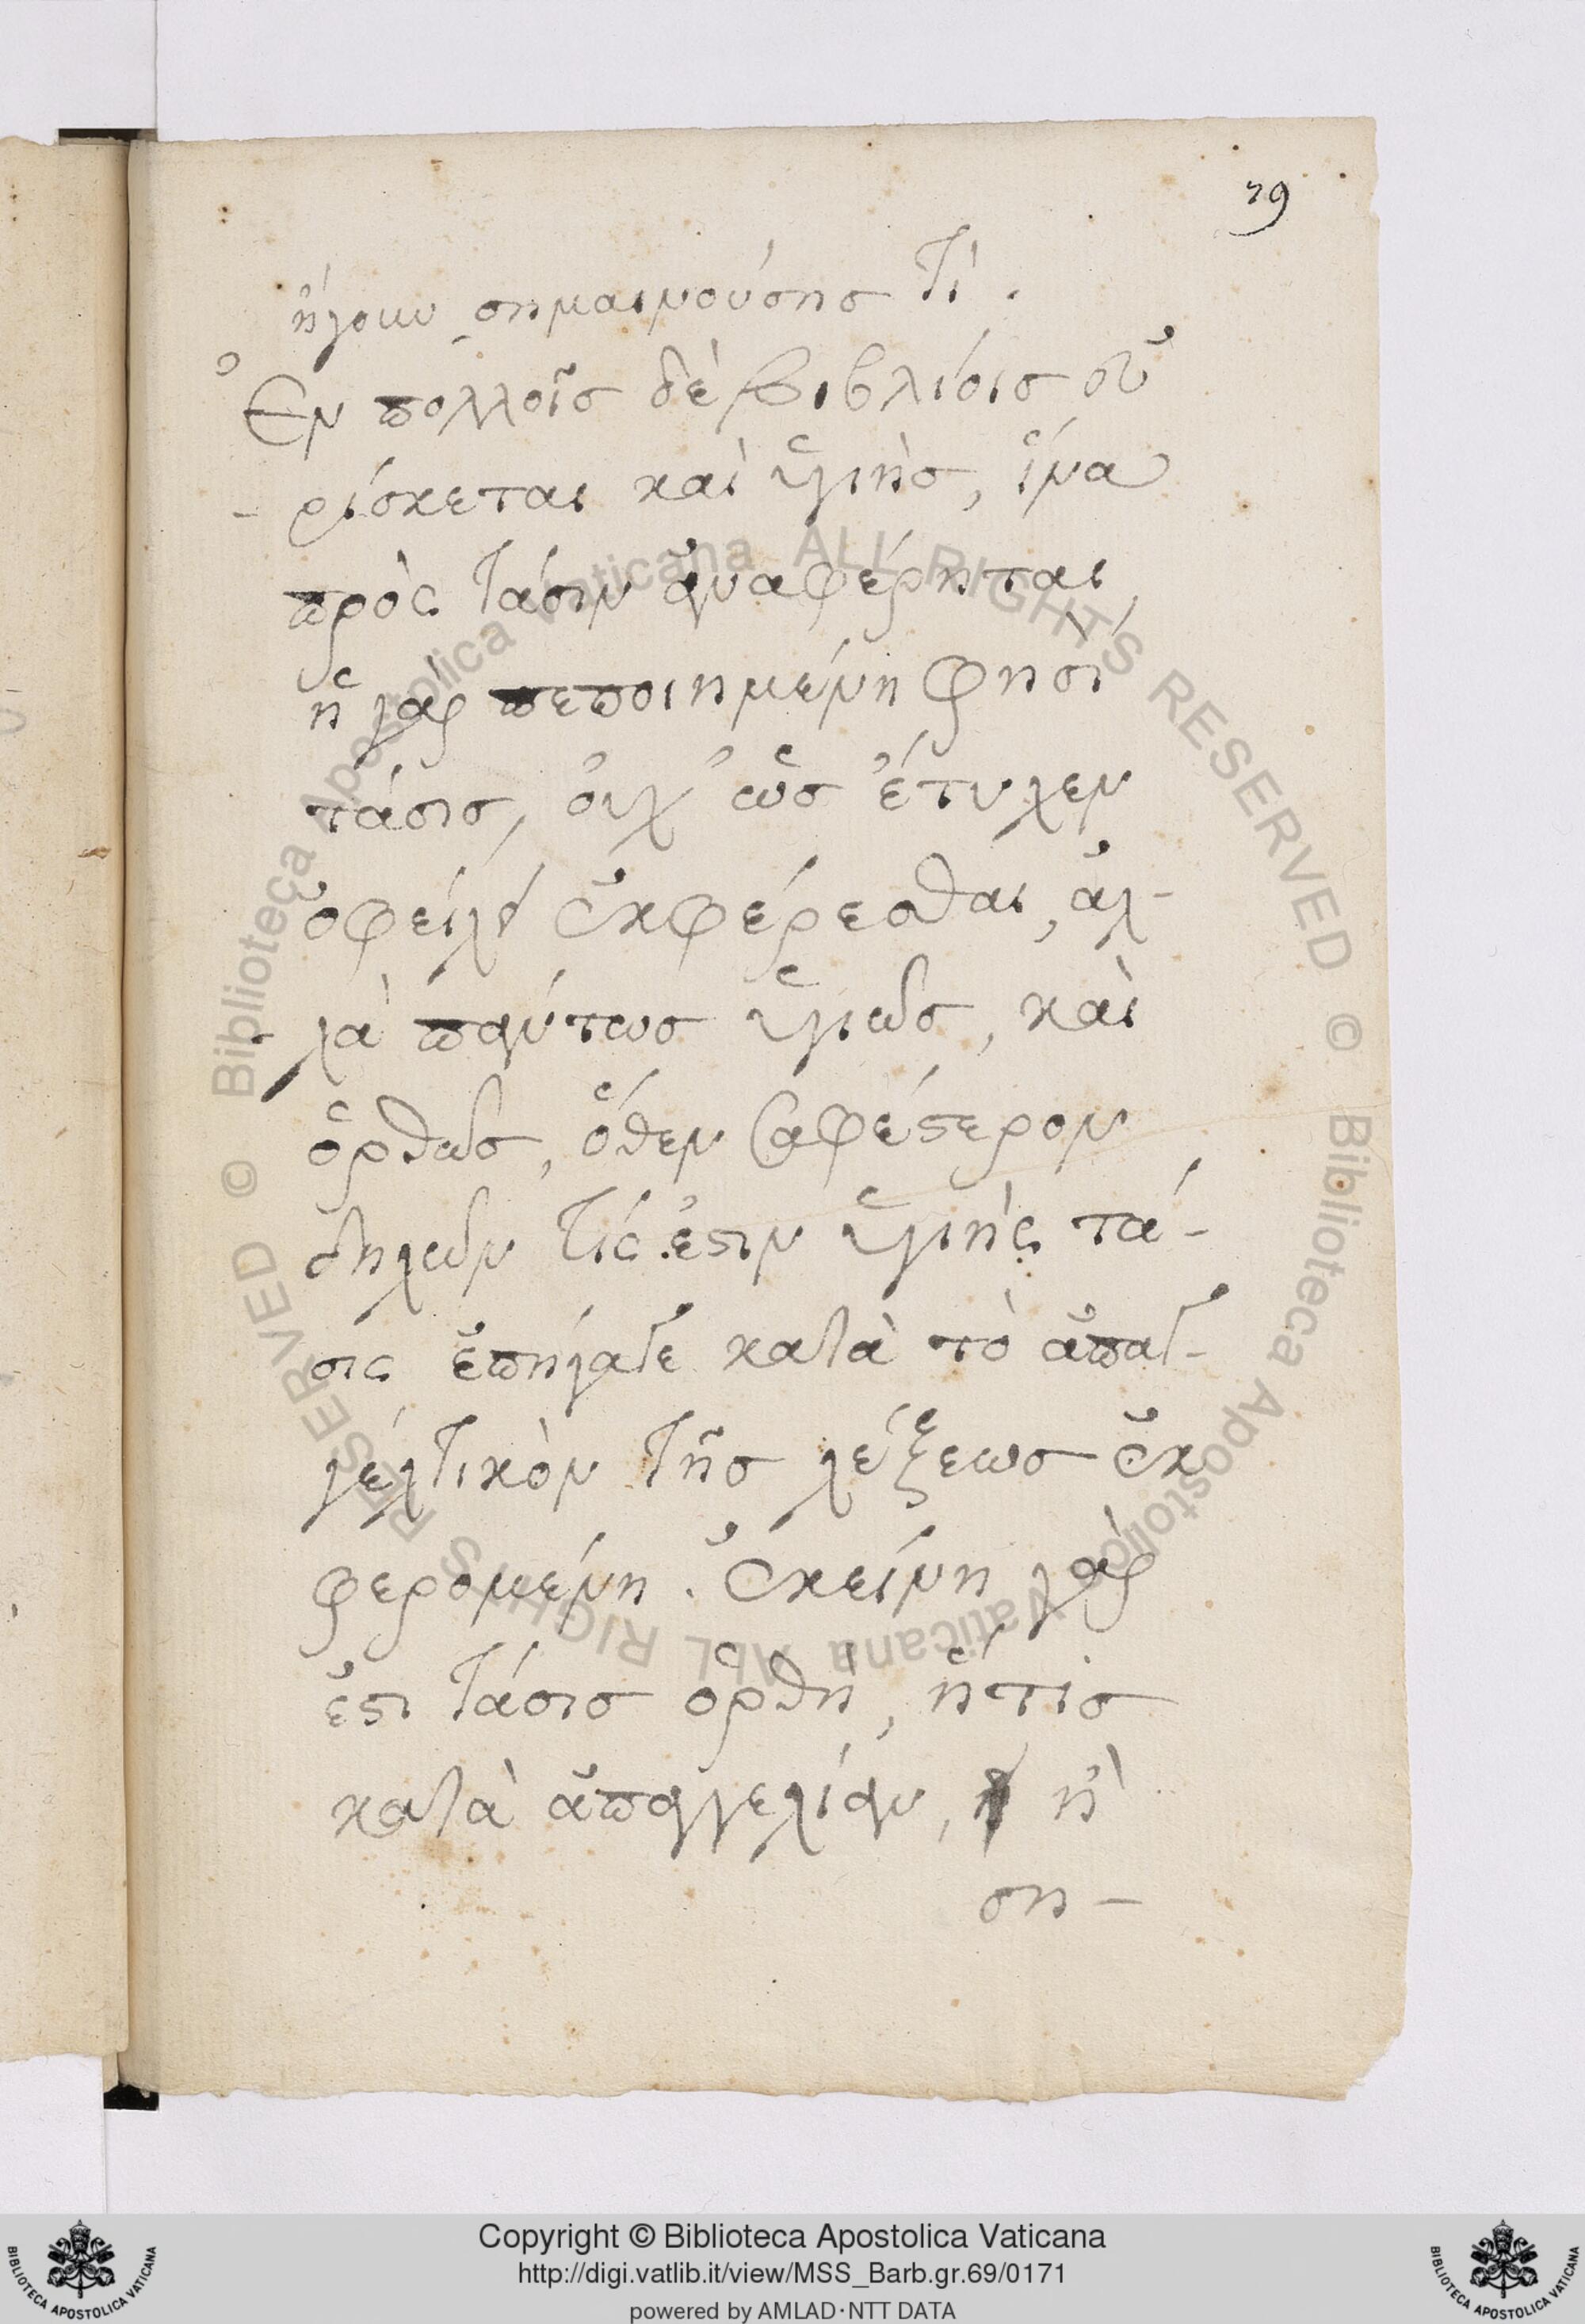 79
ἤγουν σημαινούσης τί.
Ἐν πολλοῖς δὲ βιβλίοις εὑ
-ρίσκεται καὶ ὑγιὴς, ἵνα
πρὸς τάσιν ἀναφέρηται,
ἡ γὰρ πεποιημένη φησὶ
τάσις, οὐχ' ὡς ἔτυχεν
ὀφείλει ἐκφέρεσθαι, ἀλ-
-λὰ πάντως ὑγιῶς, καὶ
ὀρθῶς, ὅθεν σαφέστερον
δηλῶν τίς ἐστιν ὑγιής τά-
σις ἐπήγαγε κατὰ τὸ ἀπαγ-
γελτικὸν τῆς λέξεως ἐκ
φερομένη. ἐκείνη γὰρ
ἐστι τάσις ὀρθὴ, ἥτις
κατὰ ἀπαγγελίαν, ἢ
ση-
Copyright © Biblioteca Apostolica Vaticana
http://digi.vatlib.it/view/MSS_Barb.gr.69/0171
powered by AMLAD·NTT DATA
BIBLIOTECA APOSTOLICA VATICANA
BIBLIOTECA APOSTOLICA VATICANA
© Biblioteca Apostolica Vaticana ALL RIGHTS RESERVED
© Biblioteca Apostolica Vaticana ALL RIGHTS RESERVED